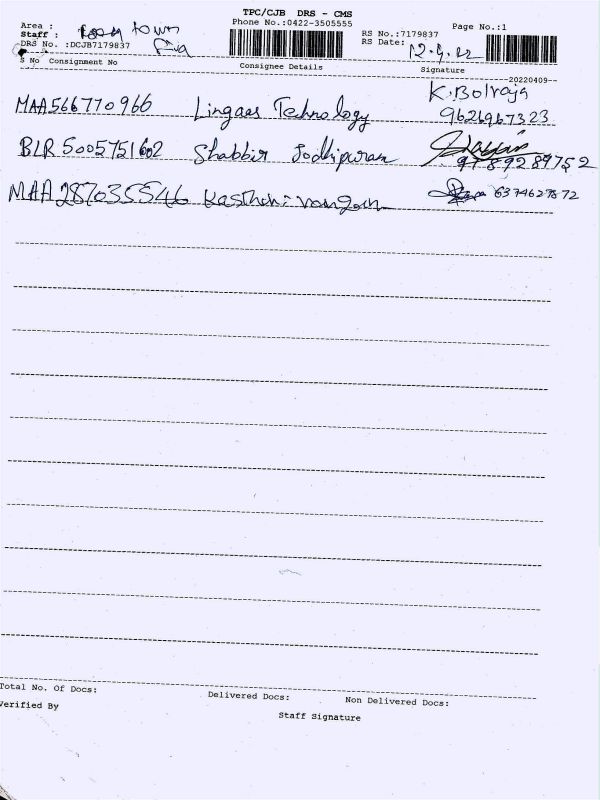 TPC/CJB DRS - CMS
Phone No.:0422-3505555
Page No.:1
Area : town
Staff : Siva
RS No.:7179837
DRS No. :DCJB7179837
RS Date: 12.4.22
S No Consignment No Consignee Details Signature
--20220409--
K.Bolraja
MAA566770966 Lingaas Technology 9626967323
BLR 5005751602 Shabbir Jodhpuran
9789289752
MAA287035546 Kasthuri rangan 6374627872
Total No. Of Docs: Delivered Docs: Non Delivered Docs:
Verified By Staff Signature